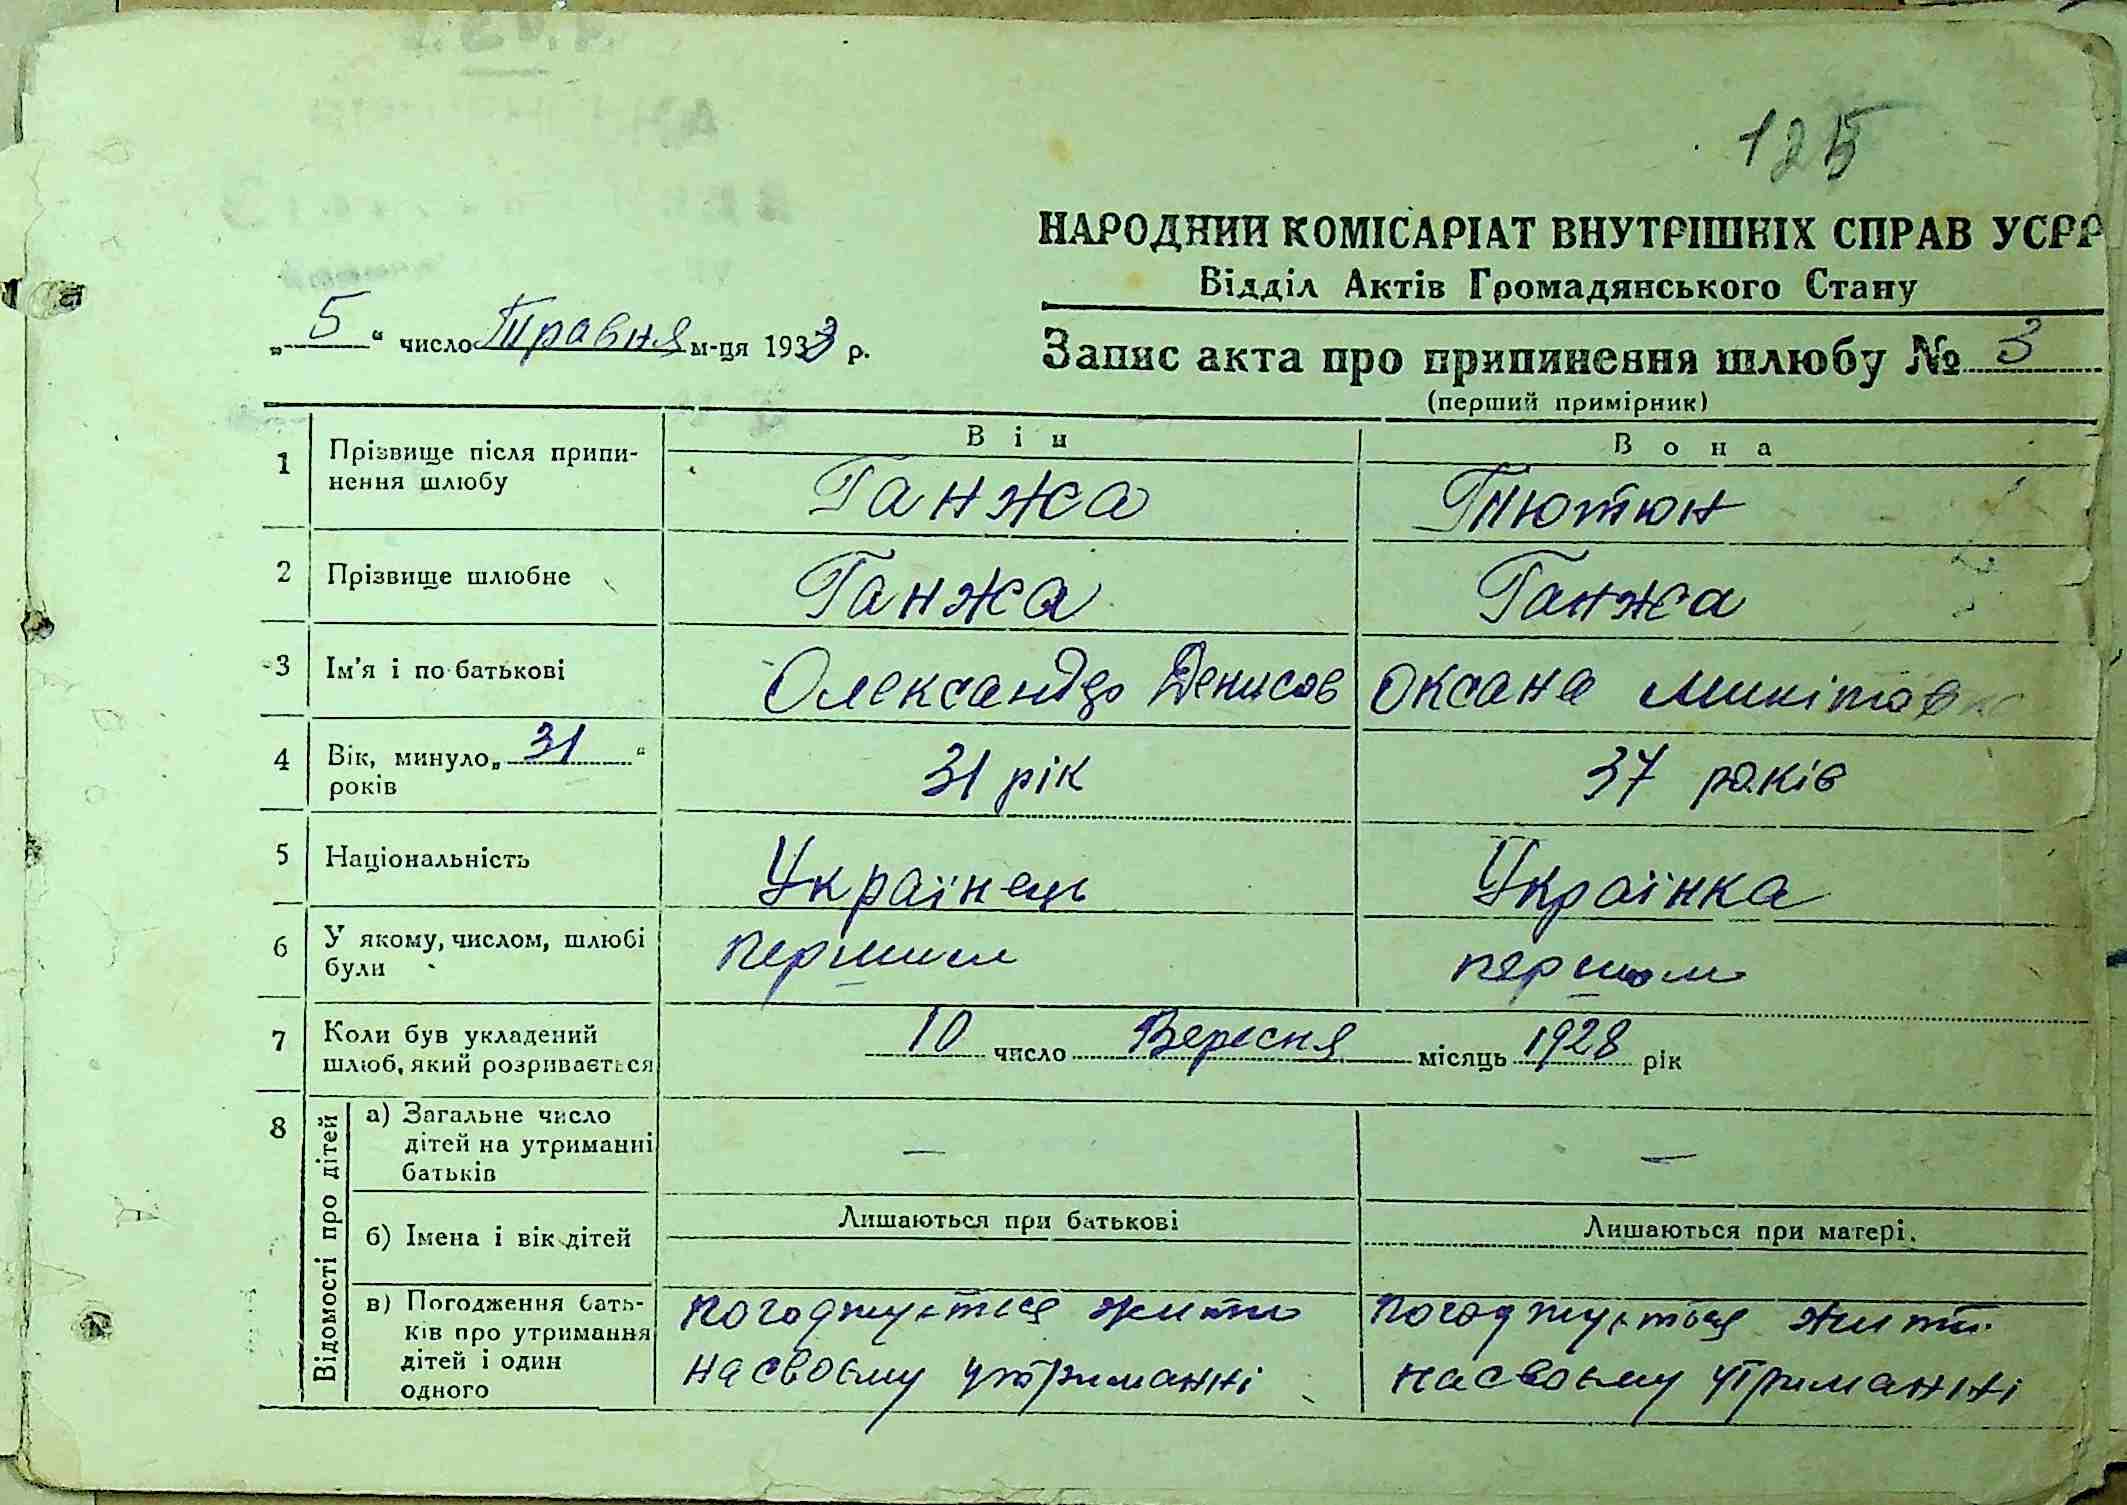 125
НАРОДНИЙ КОМІСАРІАТ ВНУТРІШНІХ СПРАВ УСРР
Відділ Актів Громадянського Стану
„ 5 “ число Травня м-ця 1933 р.
Запис акта про припинення шлюбу № 3
(перший примірник)
Він Вона
1 Прізвище після припи-
нення шлюбу Ганжа Тютюн
2 Прізвище шлюбне Ганжа Ганжа
3 Ім'я і по-батькові Олександр Денисов Оксана
4 Вік, минуло „ 31 “
років 31 рік 37 років
5 Національність Українець Українка
6 У якому, числом, шлюбі
були першим першом
7 Коли був укладений
шлюб, який розривається 10 число Вересня місяць 1928 рік
8 Відомості про дітей
а) Загальне число
дітей на утриманні
батьків — —
б) Імена і вік дітей Лишаються при батькові Лишаються при матері.
в) Погодження бать-
ків про утримання
дітей і один
одного
погоджується жити
на своєму утриманні
погоджується жити
на своєму утриманні